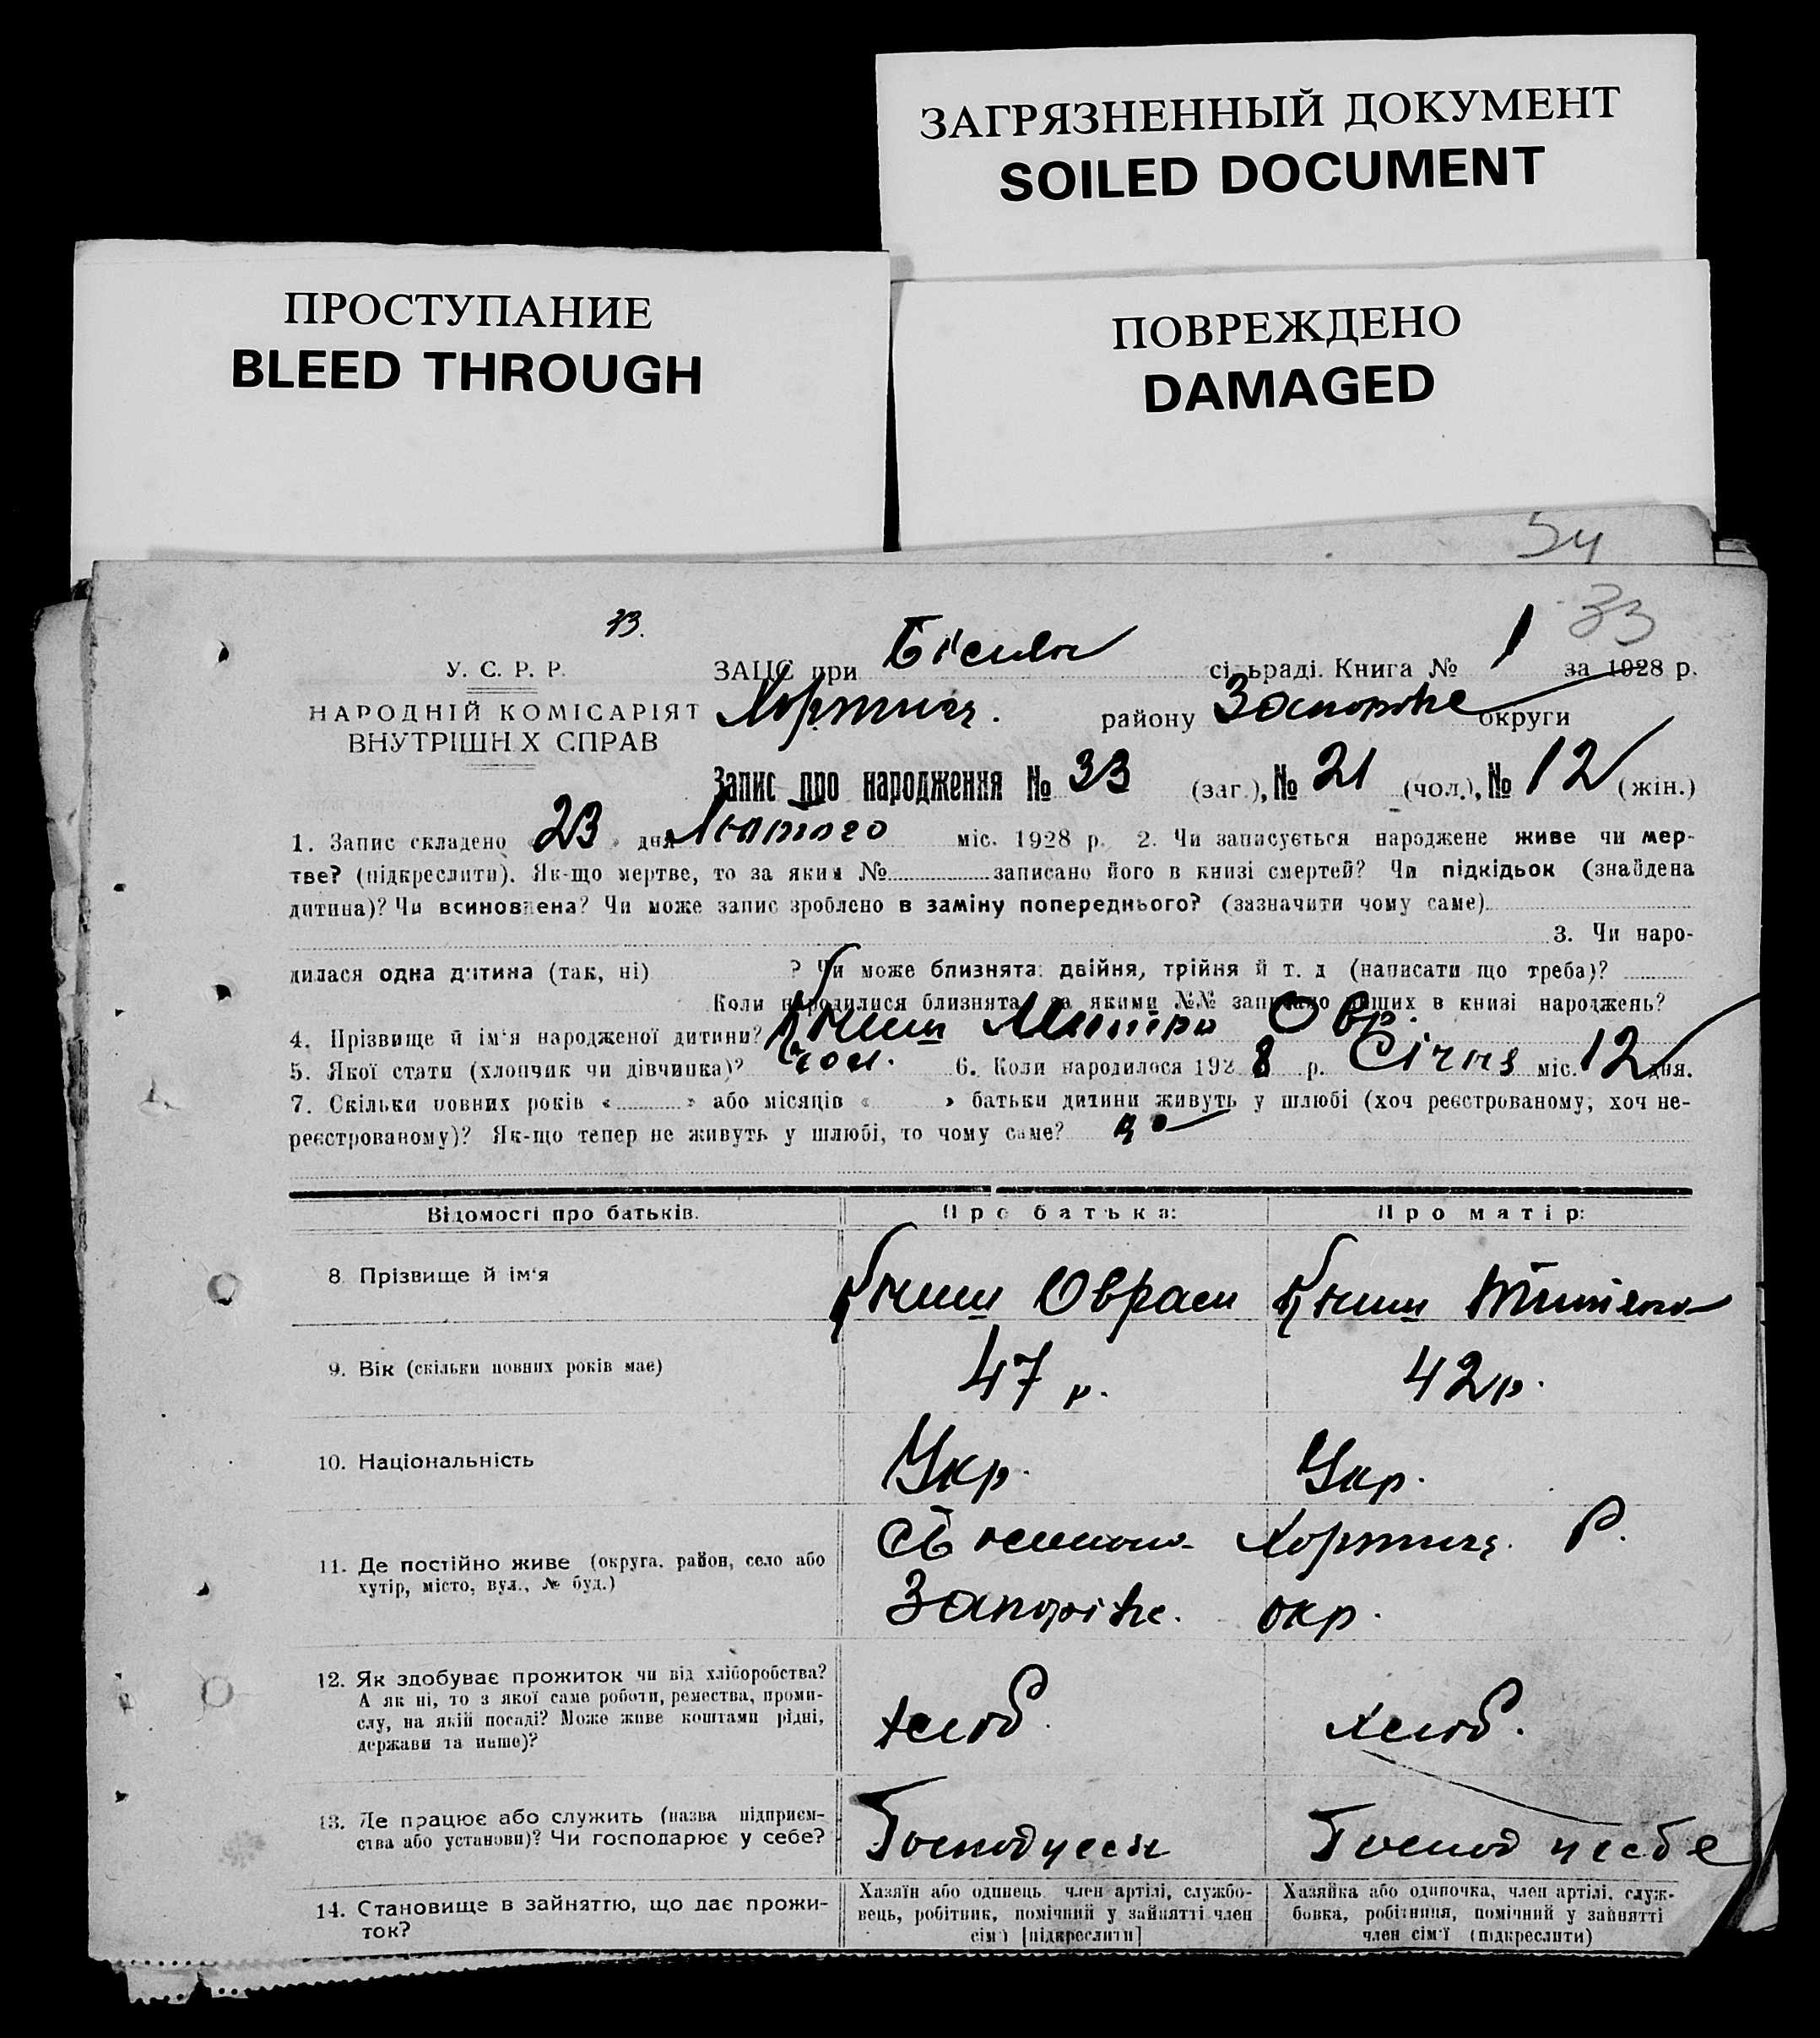 ЗАГРЯЗНЕННЫЙ ДОКУМЕНТ
SOILED DOCUMENT
ПРОСТУПАНИЕ
BLEED THROUGH
ПОВРЕЖДЕНО
DAMAGED
54
33
33.
У. С. Р. Р.
НАРОДНІЙ КОМІСАРІЯТ
ВНУТРІШНІХ СПРАВ
ЗАЦС при сільраді. Книга № 1 за 1928 р.
Хортиц. району Запоріже округи
Запис про народження № 33 (заг.), № 21 (чол.), № 12 (жін.)
1. Запис складено « 23 » дня Лютого міс. 1928 р. 2. Чи записується народжене живе чи мер-
тве? (підкреслити). Як-що мертве, то за яким № записано його в книзі смертей? Чи підкідьок (знайдена
дитина)? Чи всиновлена? Чи може запис зроблено в заміну попереднього? (зазначити чому саме)
3. Чи наро-
дилася одна дитина (так, ні) ? Чи може близнята: двійня, трійня й т. д (написати що треба)?
Коли народилися близнята, за якими №№ записано інших в книзі народжень?
4. Прізвище й ім'я народженої дитини? Книш Дмитро Овр.
5. Якої стати (хлопчик чи дівчинка)? чол. 6. Коли народилося 1928 р. Січня міс. 12 дня.
7. Скільки повних років « » або місяців « » батьки дитини живуть у шлюбі (хоч реєстрованому, хоч не-
реєстрованому)? Як-що тепер не живуть у шлюбі, то чому саме?
Відомості про батьків.
Про батька:
Про матір:
8. Прізвище й ім'я
Книш Оврам
Книш
9. Вік (скільки повних років має)
47 р.
42 р.
10. Національність
Укр.
Укр.
11. Де постійно живе (округа, район, село або
хутір, місто, вул., № буд.)
Хортиц. Р.
Запоріже. окр.
12. Як здобуває прожиток чи від хліборобства?
А як ні, то з якої саме роботи, ремества, проми-
слу, на якій посаді? Може живе коштами рідні,
держави та инше)?
хліб.
хліб.
13. Де працює або служить (назва підприєм-
ства або установи)? Чи господарює у себе?
Господ у себе
14. Становище в зайняттю, що дає прожи-
ток?
Хазяїн або одинець, член артілі, службо-
вець, робітник, помічний у зайнятті член
сім'ї [підкреслити]
Хазяйка або одиночка, член артілі, служ-
бовка, робітниця, помічний у зайнятті
член сім'ї (підкреслити)